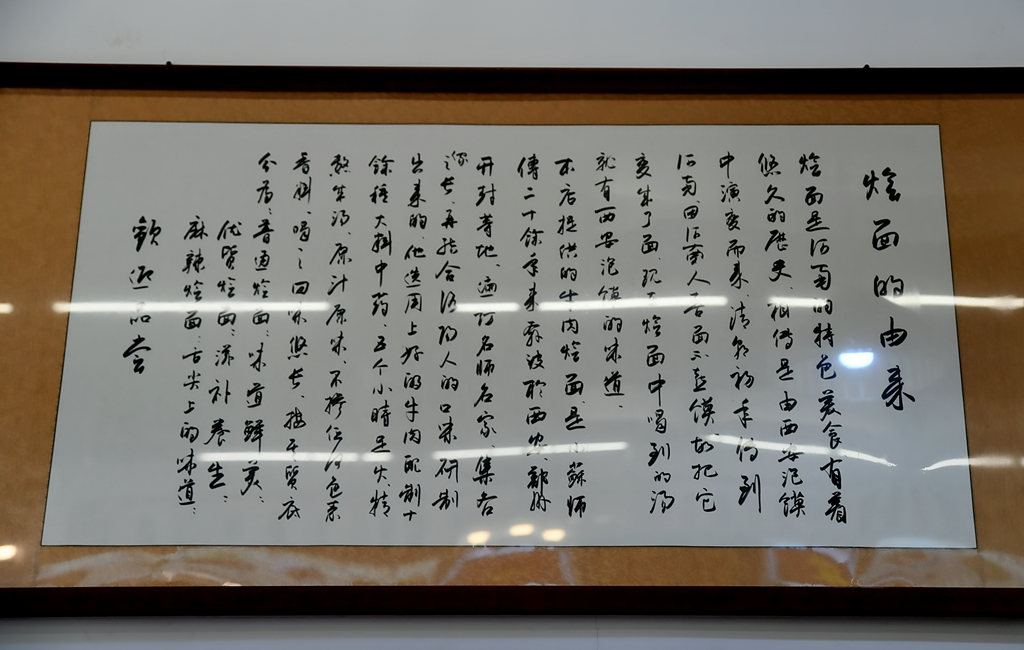 烩面的由来
烩面是河南的特色美食有着
悠久的历史、相传是由西安泡馍
中演变而来、清朝初年传到
河南、因河南人喜面不喜馍、故把它
变成了面、现在烩面中喝到的汤
就有西安泡馍的味道、
本店提供的牛肉烩面是由蘇师
傅二十餘年来奔波於西安、鄭州
开封等地、遍访名师名家、集各
家之长、再结合洛阳人的口味研制
出来的、他选用上好的牛肉配制十
餘種大料中药、五个小時足火精
熬成汤、原汁原味、不掺任何色素
香料、喝之回味悠长、按质底
分为：普通烩面：味道鲜美：
优质烩面：滋补养生：
麻辣烩面：舌尖上的味道：
歡迎品尝